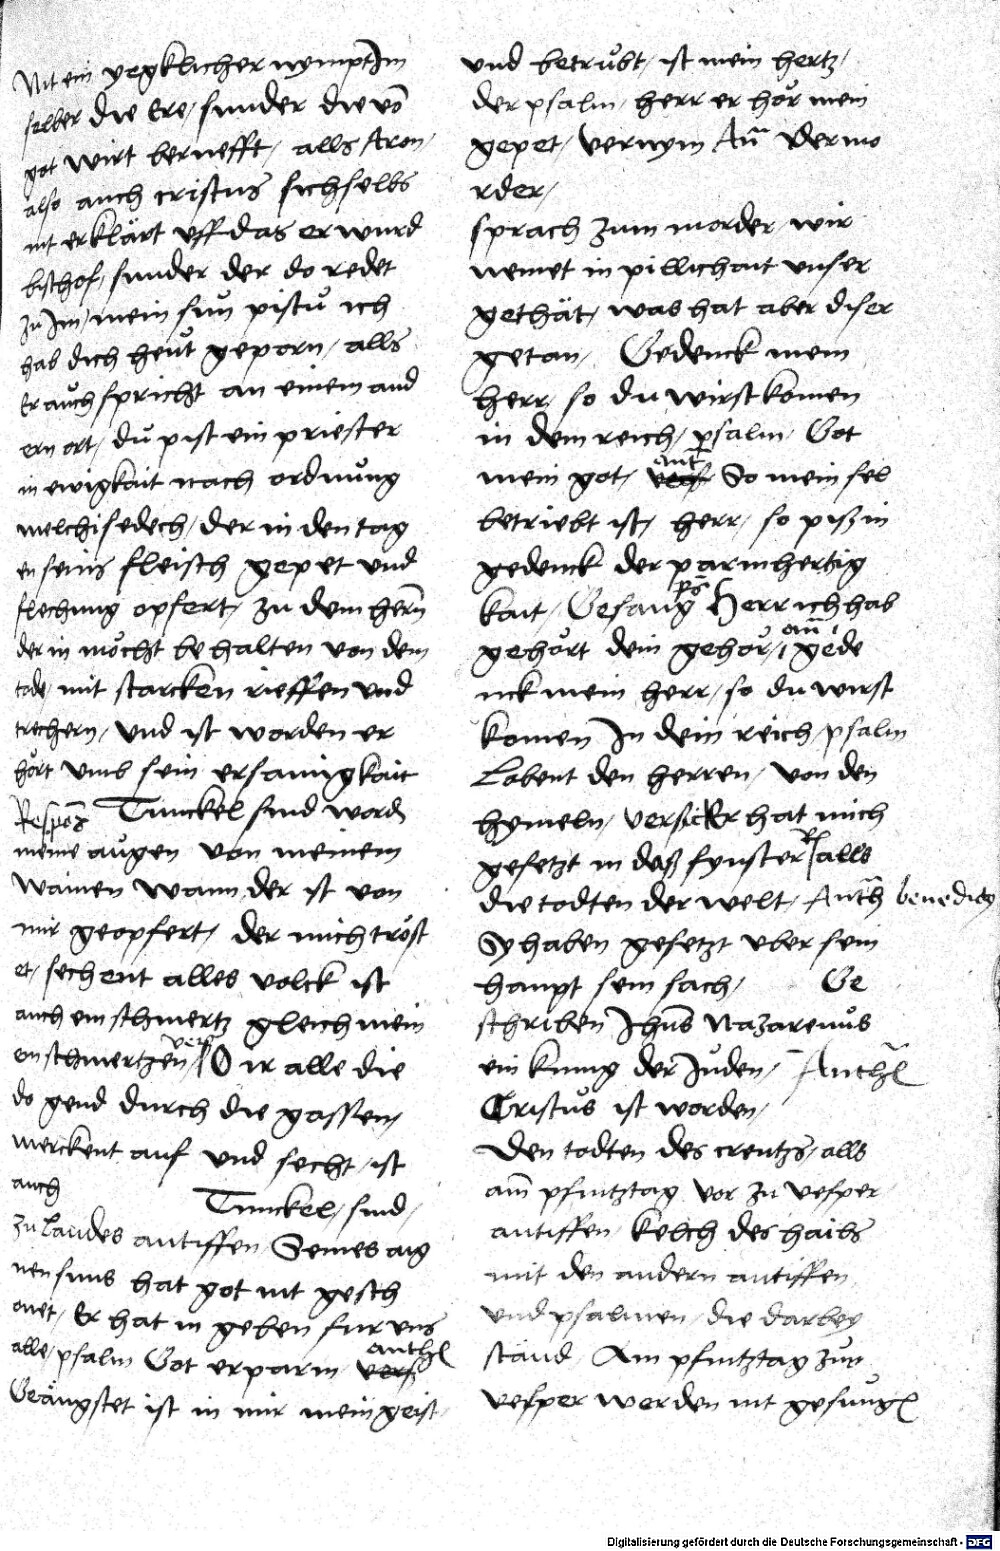 Nit ein yegklicher nympt Im
selber die Ere / sunder die vō
got wirt berüefft / alls Aron /
also auch cristus sich selbs
nit erklärt uff das er wurd
bischof / sunder der do redet
zu Im / mein sun pistu ich
hab dich heut geporn / alls
Er auch spricht an einem and
ern ort / du pist ein priester
in ewigkait nach ordnung
melchisedech / der in den tag
en seins fleisch gepet und
flechung opfert / zu dem herrn
der in möcht behalten von dem
tode / mit starcken rieffen und
trechern / und ist worden er
hört umb sein ersamigkait
Respōs Tunckel sind wordn
meine augen von meinem
wainen wann der ist von
mir geopfert / der mich tröst
et / sechent alles volck ist
auch ein schmertz gleich mein
en schmertzen vers O ir alle die
do gend durch die gassen /
merckent auf und secht / ist
auch Tunckel / sind /
zu Laudes antiffen / Seines aig
nen suns hat got nit gesch
onet / Er hat in geben fur uns
alle / psalm Got erparm / vers anthfl
Geängstet ist in mir mein geist /
und betrübt / ist mein hertz /
der psalm / herr er hör mein
gepet / vernym An̄ Der mo
rder /
sprach zum morder / wir
nemet in pillichait unser
gethät / was hat aber diser
getan / Gedenck mein
herr / so du wirst komen
in dein reich / psalm / Got
mein got / vers ant So mein sel
betriebt ist / herr / so pis in
gedenck der parmhertzig
kait / Gesang ps Herr ich hab
gehört dein gehör / an̄ gede
nck mein herr / so du wirst
komen In dein reich / psalm
Lobent den herren / von den
hymeln / versic Er hat mich
gesetzt in das fynster R alls
die todten der welt / Anth benedictus
Sy haben gesetzt uber sein
haupt sein sach / Ge
schriben Jhūs Nazarenus
ein kunig der Juden / Anthfl
Cristus ist worden /
den todten des creutzs / alls
am̄ pfintztag vor zu vesper /
antiffen / kelch des hails
mit den andern antiffen
und psalmen / die darbey
stand / Am pfintztag zur
vesper werden nit gesungn